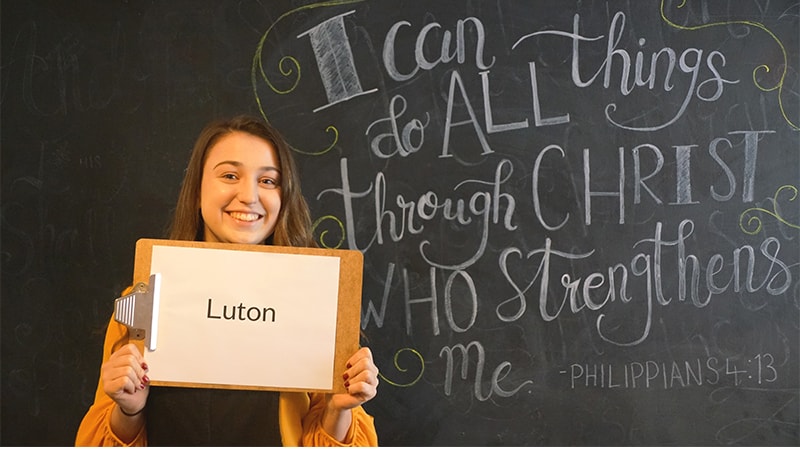 Luton
I can
do ALL things
through CHRIST
WHO Strengthens
Me.
-PHILIPPIANS 4:13